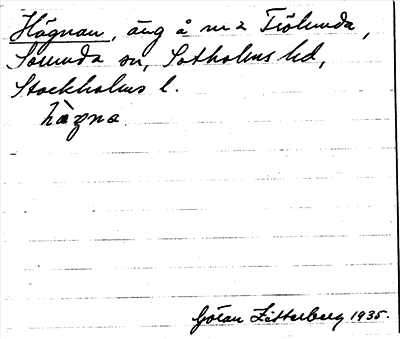 Högnan, äng å nr 2 Fiölunda,
Sorunda sn, Sotholms hd,
Stockholms l.
hàgna
Göran Zetterberg 1935.